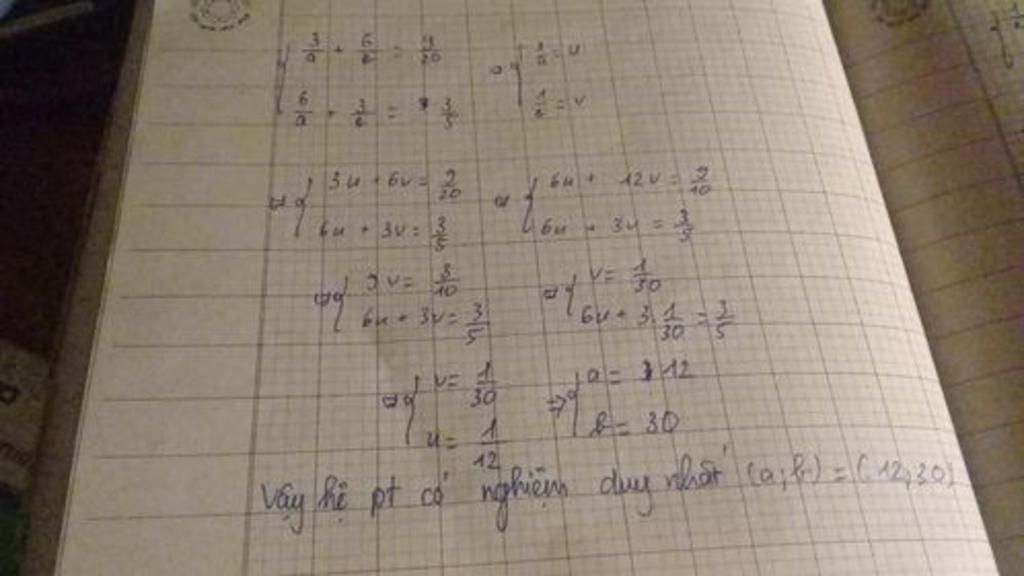 { 3/a + 6/b = 9/20
{ 6/a + 3/b = 3/5
⇔ { 1/a = u
{ 1/b = v
⇔ { 3u + 6v = 9/20
{ 6u + 3v = 3/5
⇔ { 6u + 12v = 9/10
{ 6u + 3v = 3/5
⇔ { 9v = 3/10
{ 6u + 3v = 3/5
⇔ { v = 1/30
{ 6u + 3.1/30 = 3/5
⇔ { v = 1/30
{ u = 1/12
⇒ { a = 12
{ b = 30
Vậy hệ pt có nghiệm duy nhất (a;b) = (12;30)